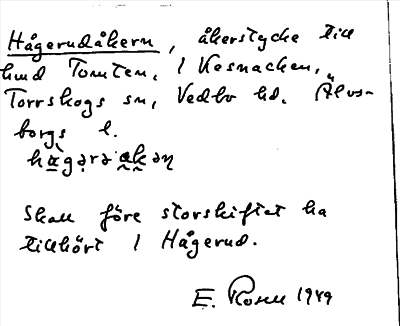 Hågerudåkern, åkerstycke till
hmd Tomten, 1 Kesnacken,
Torrskogs sn, Vedbo hd. Älvs-
borgs l.
hågərə åkəŋ
Skall före storskiftet ha
tillhört 1 Hågerud.
E. Rosell 1949